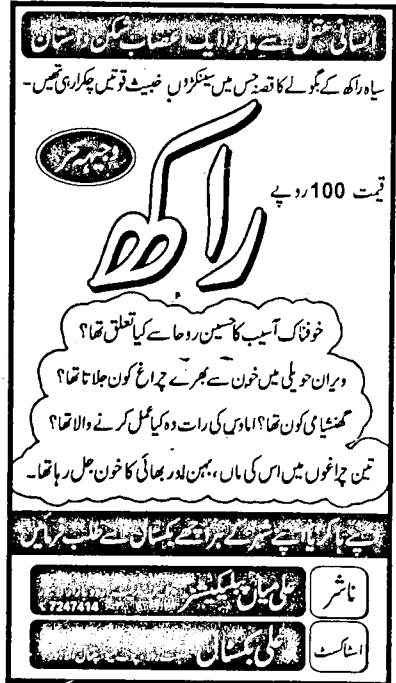 انسانی عقل سے ماورا ایک اعصاب شکن داستان
سیاہ راکھ کے بگولے کا قصہ جس میں سینکڑوں خبیث قوتیں چکرا رہی تھیں۔
وجیہہ سحر
قیمت 100 روپے
راکھ
خوفناک آسیب کا حسین روحا سے کیا تعلق تھا؟
ویران حویلی میں خون سے بھرے چراغ کون جلاتا تھا؟
گھنشیامی کون تھا؟ اماوس کی رات وہ کیا عمل کرنے والا تھا؟
تین چراغوں میں اس کی ماں، بہن اور بھائی کا خون جل رہا تھا۔
اپنے ہاکر یا اپنے شہر کے ہر اچھے بکسٹال سے طلب فرمائیں
ناشر
علی میاں پبلیکیشنز
7247414
اسٹاکسٹ
علی بکسٹال